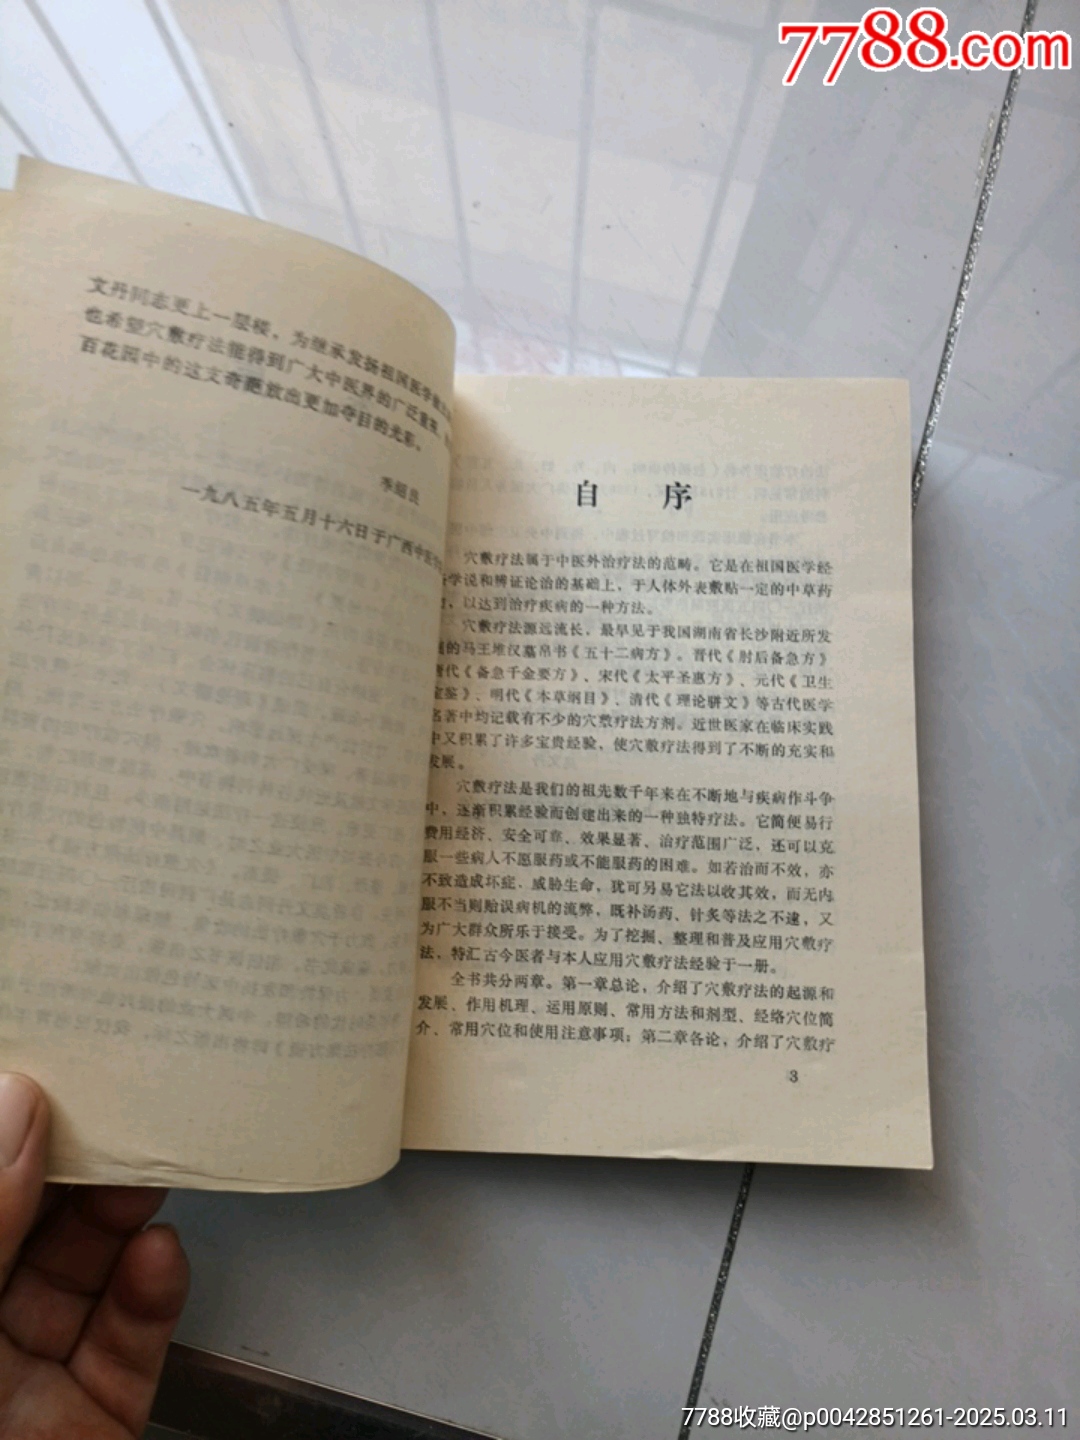 7788.com
文丹同志更上一层楼，为继承发扬祖国医学
也希望穴敷疗法能得到广大中医界的广泛重视，
百花园中的这支奇葩放出更加夺目的光彩。
一九八五年五月十六日于广西中医
自 序
穴敷疗法属于中医外治疗法的范畴。它是在祖国医学经
学说和辨证论治的基础上，于人体外表敷贴一定的中草药
，以达到治疗疾病的一种方法。
穴敷疗法源远流长，最早见于我国湖南省长沙附近所发
的马王堆汉墓帛书《五十二病方》。晋代《肘后备急方》
唐代《备急千金要方》、宋代《太平圣惠方》、元代《卫生
宝鉴》、明代《本草纲目》、清代《理论骈文》等古代医学
名著中均记载有不少的穴敷疗法方剂。近世医家在临床实践
中又积累了许多宝贵经验，使穴敷疗法得到了不断的充实和
发展。
穴敷疗法是我们的祖先数千年来在不断地与疾病作斗争
中，逐渐积累经验而创建出来的一种独特疗法。它简便易行
费用经济、安全可靠、效果显著、治疗范围广泛，还可以克
服一些病人不愿服药或不能服药的困难。如若治而不效，亦
不致造成坏症．威胁生命，犹可另易它法以收其效，而无内
服不当则贻误病机的流弊，既补汤药、针灸等法之不逮，又
为广大群众所乐于接受。为了挖掘、整理和普及应用穴敷疗
法，特汇古今医者与本人应用穴敷疗法经验于一册。
全书共分两章。第一章总论，介绍了穴敷疗法的起源和
发展、作用机理、运用原则、常用方法和剂型、经络穴位简
介、常用穴位和使用注意事项；第二章各论，介绍了穴敷疗
3
7788收藏@p0042851261-2025.03.11